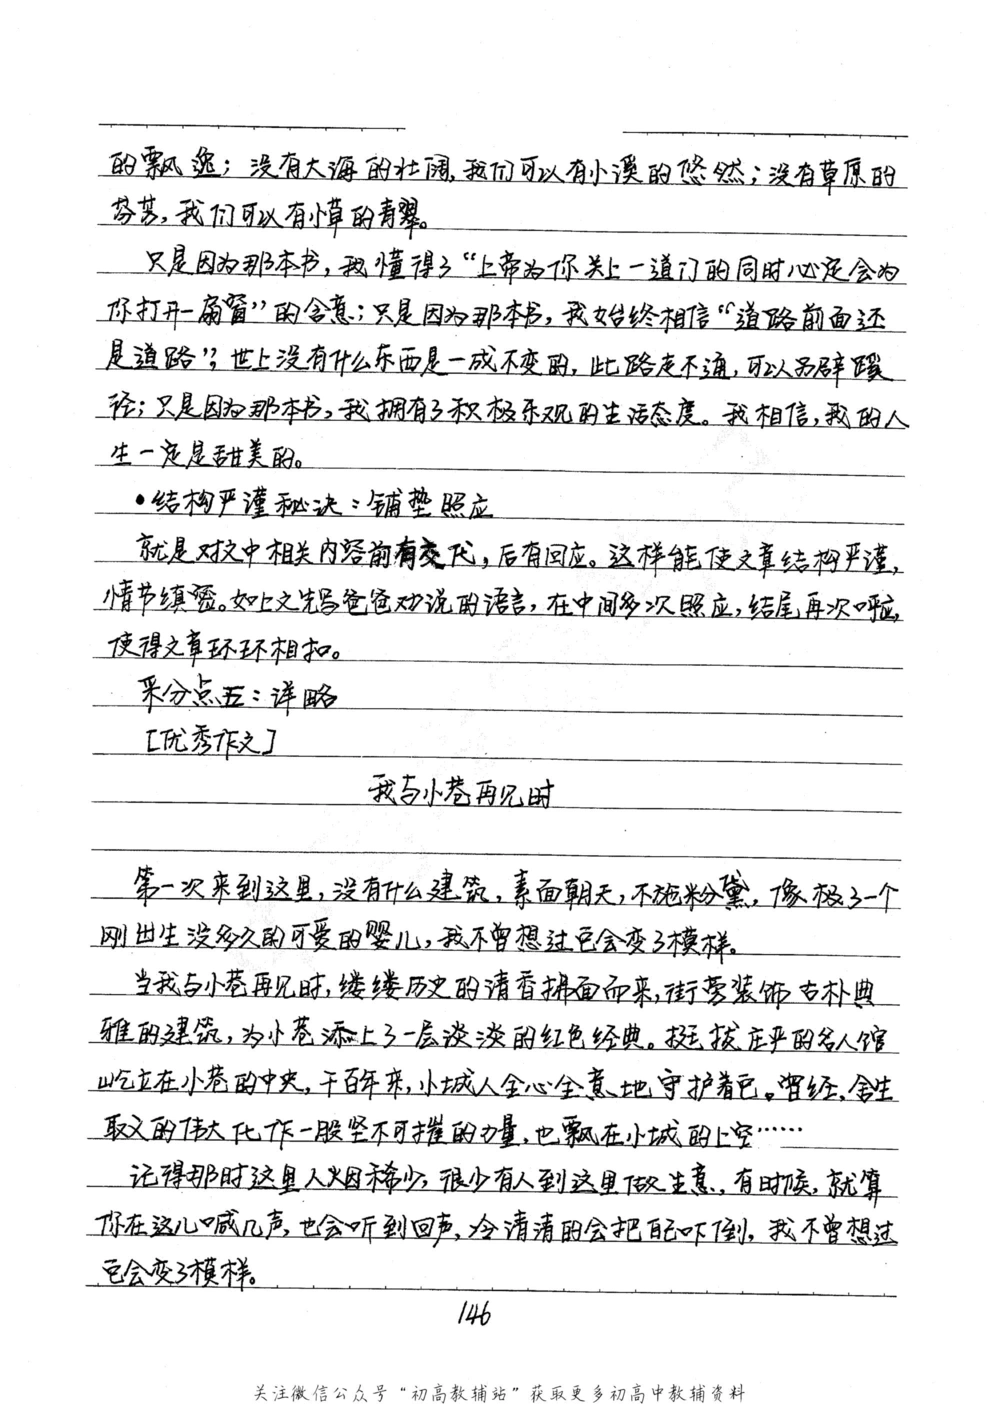 的飘逸；没有大海的壮阔，我们可以有小溪的悠然；没有草原的
芬芳，我们可以有小草的青翠。
只是因为那本书，我懂得了“上帝为你关上一道门的同时必定会为
你打开一扇窗”的含意；只是因为那本书，我始终相信“道路前面还
是道路”，世上没有什么东西是一成不变的，此路走不通，可以另辟蹊
径；只是因为那本书，我拥有了积极乐观的生活态度。我相信，我的人
生一定是甜美的。
•结构严谨秘诀：铺垫照应
就是对文中相关内容前有交代，后有回应。这样能使文章结构严谨，
情节缜密。如上文先写爸爸劝说的语言，在中间多次照应，结尾再次呼应，
使得文章环环相扣。
采分点五：详略
[优秀作文]
我与小巷再见时
第一次来到这里，没有什么建筑，素面朝天，不施粉黛，像极了一个
刚出生没多久的可爱的婴儿，我不曾想过它会变了模样。
当我与小巷再见时，缕缕历史的清香拂面而来，街旁装饰古朴典
雅的建筑，为小巷添上了一层淡淡的红色经典。挺拔庄严的名人馆
屹立在小巷的中央，千百年来，小城人全心全意地守护着它。曾经，舍生
取义的伟大化作一股坚不可摧的力量，也飘在小城的上空……
记得那时这里人烟稀少，很少有人到这里做生意，有时候，就算
你在这儿喊几声，也会听到回声，冷清清的会把自己吓倒，我不曾想过
它会变了模样。
146
关注微信公众号“初高教辅站”获取更多初高中教辅资料